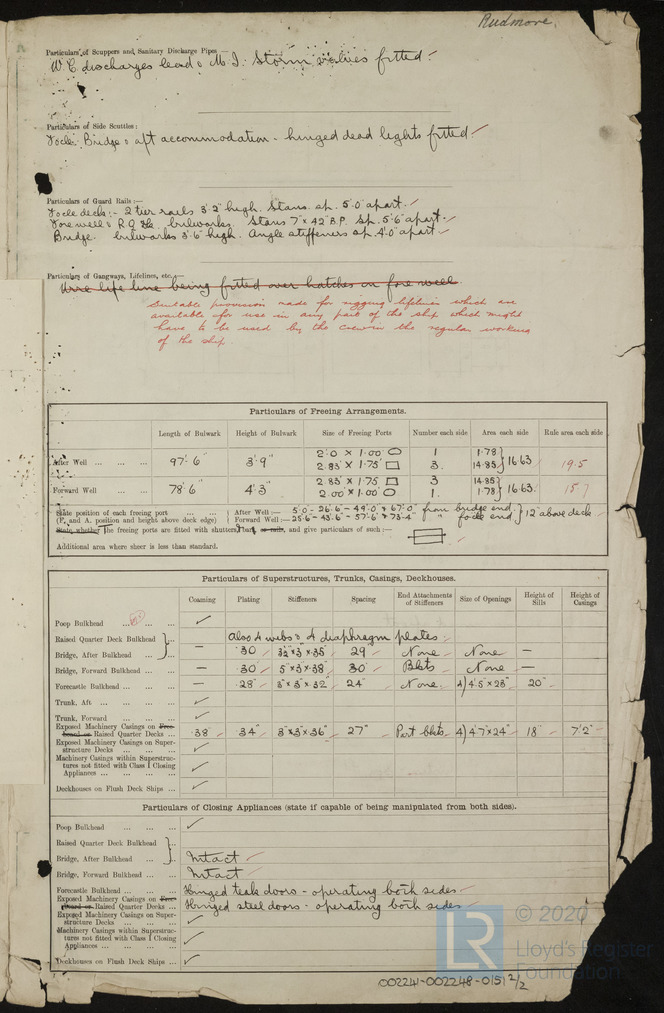 Rudmore.
Particulars of Scuppers and Sanitary Discharge Pipes :—
W.C. discharges lead & M.I. Storm valves fitted.
Particulars of Side Scuttles :
Focle Bridge & aft accommodation - hinged dead lights fitted.
Particulars of Guard Rails :—
Focle deck :- 2 tier rails 3'2" high. Stans. sp. 5'0 apart.
Fore well & R.Q. Dk. bulwarks. Stans 7" x 42 B.P. Sp. 5'6 apart.
Bridge. bulwarks 3'6" high. Angle stiffeners sp. 4'0 apart.
Particulars of Gangways, Lifelines, etc. :—
Wire life line being fitted over hatches in fore well.
Suitable provision made for rigging lifelines which are
available for use in any part of the ship which might
have to be used by the crew in the regular working
of the ship.
Particulars of Freeing Arrangements.
Length of Bulwark Height of Bulwark Size of Freeing Ports Number each side Area each side Rule area each side
After Well ... ... ... 97'.6" 3'.9" 2'.0 x 1.00' 1 1.78 16.63 19.5
2.83' x 1.75' 3. 14.85
Forward Well ... ... 78'.6" 4'.3" 2.83' x 1.75 3 14.85 16.63. 15.7
2.00' x 1.00' 1. 1.78
State position of each freeing port ... ... After Well :— 5'.0 - 26'.6 - 49'.0 & 67'.0" from bridge end. 12" above deck.
(F. and A. position and height above deck edge) Forward Well :— 25'.6 - 43'.6 - 57'.6 & 73'.4" " focle end
State whether the freeing ports are fitted with shutters, bars or rails, and give particulars of such :—
Additional area where sheer is less than standard.
Particulars of Superstructures, Trunks, Casings, Deckhouses.
Coaming Plating Stiffeners Spacing End Attachments of Stiffeners Size of Openings Height of Sills Height of Casings
Poop Bulkhead ... ... ...
Raised Quarter Deck Bulkhead ... Also 4 webs & 4 diaphragm plates
Bridge, After Bulkhead ... — .30 3½"x3"x.35" 29 None None —
Bridge, Forward Bulkhead ... — .30 5"x3"x.38" 30" Bkts None —
Forecastle Bulkhead ... ... — .28" 3"x3"x.32" 24" None. 4) 4'.5"x28" 20"
Trunk, Aft ... ... ...
Trunk, Forward ... ... ...
Exposed Machinery Casings on Freeboard or Raised Quarter Decks ... .38 .34" 3"x3"x.36" 27" Part bkts 4) 4'.7"x24" 18" 7'2"
Exposed Machinery Casings on Superstructure Decks ... ... ...
Machinery Casings within Superstructures not fitted with Class I Closing Appliances ... ... ...
Deckhouses on Flush Deck Ships ...
Particulars of Closing Appliances (state if capable of being manipulated from both sides).
Poop Bulkhead ... ... ...
Raised Quarter Deck Bulkhead ...
Bridge, After Bulkhead ... Intact
Bridge, Forward Bulkhead ... Intact
Forecastle Bulkhead ... ... Hinged teak doors - operating both sides
Exposed Machinery Casings on Freeboard or Raised Quarter Decks Hinged steel doors - operating both sides
Exposed Machinery Casings on Superstructure Decks ... ... ...
Machinery Casings within Superstructures not fitted with Class I Closing Appliances ... ... ...
Deckhouses on Flush Deck Ships ...
LR © 2020
Lloyd's Register
Foundation
002241-002248-0151 2/2